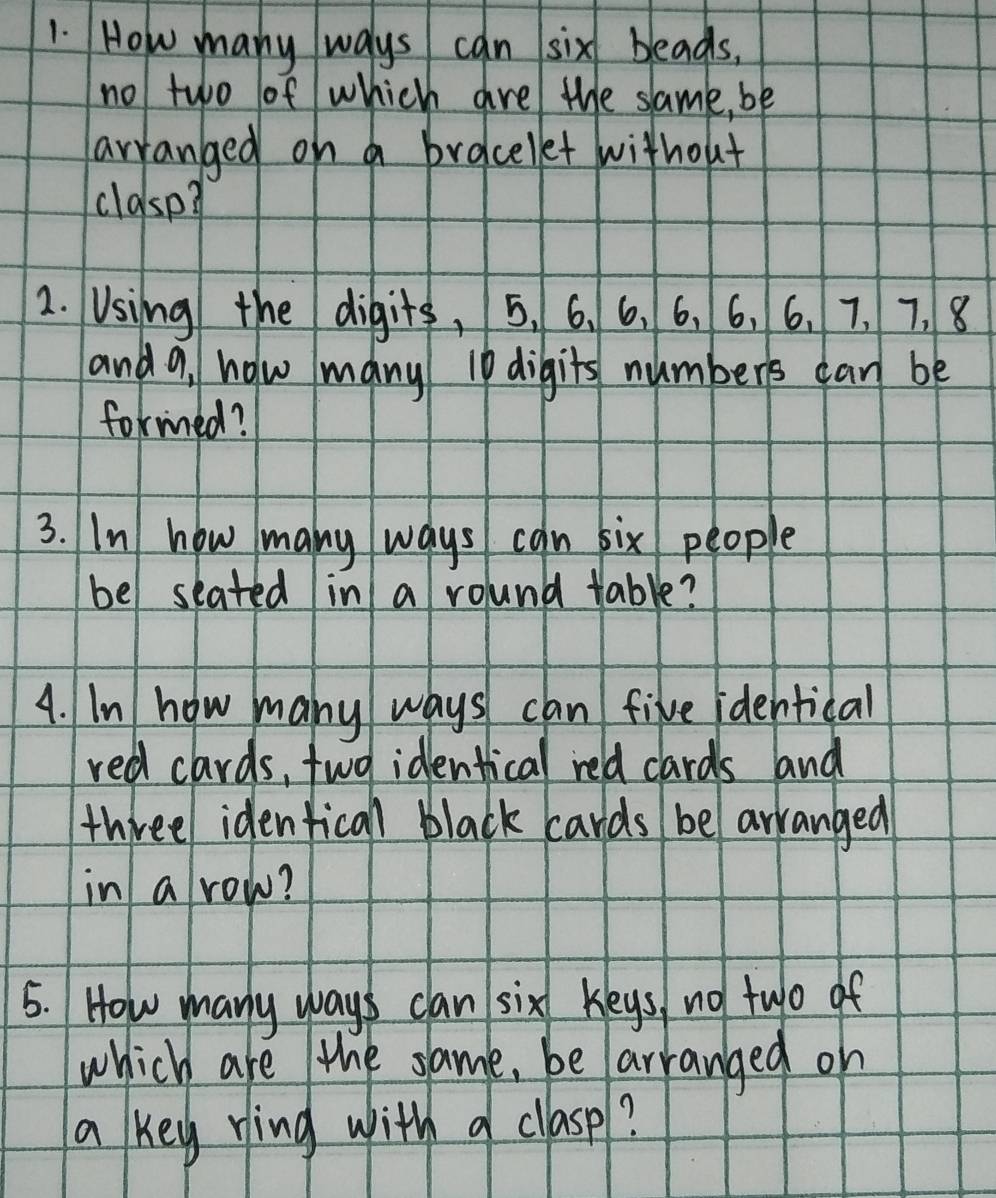 1. How many ways can six beads,
no two of which are the same, be
arranged on a bracelet without
clasp?
2. Using the digits, 5, 6, 6, 6, 6, 6, 7, 7, 8
and 9, how many 10 digits numbers can be
formed?
3. In how many ways can six people
be seated in a round table?
4. In how many ways can five identical
red cards, two identical red cards and
three identical black cards be arranged
in a row?
5. How many ways can six keys, no two of
which are the same, be arranged on
a key ring with a clasp?